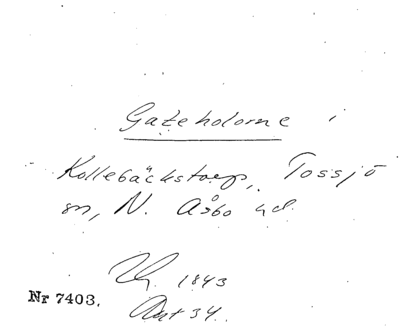 Gateholorne i
Kollebäckstorp, Tossjö
sn, N. Åsbo hd.
1843
Nr 7403.
Ant 34.